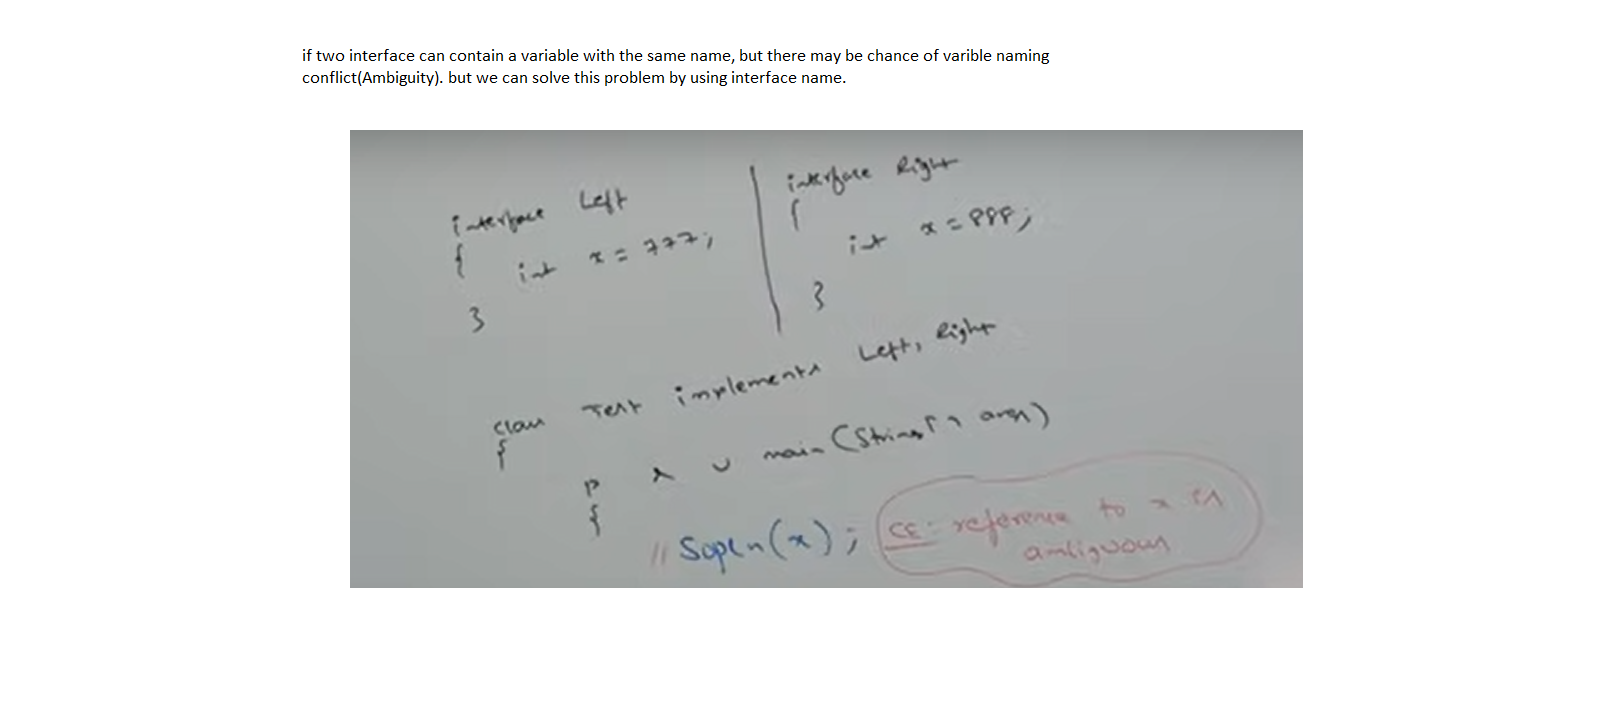 if two interface can contain a variable with the same name, but there may be chance of varible naming
conflict(Ambiguity). but we can solve this problem by using interface name.
interface Left
{
int x = 777;
}
interface Right
{
int x = 888;
}
class Test implements Left, Right
{
p s v main (String[] args)
{
// Sopln(x);
CE: reference to x is
ambiguous